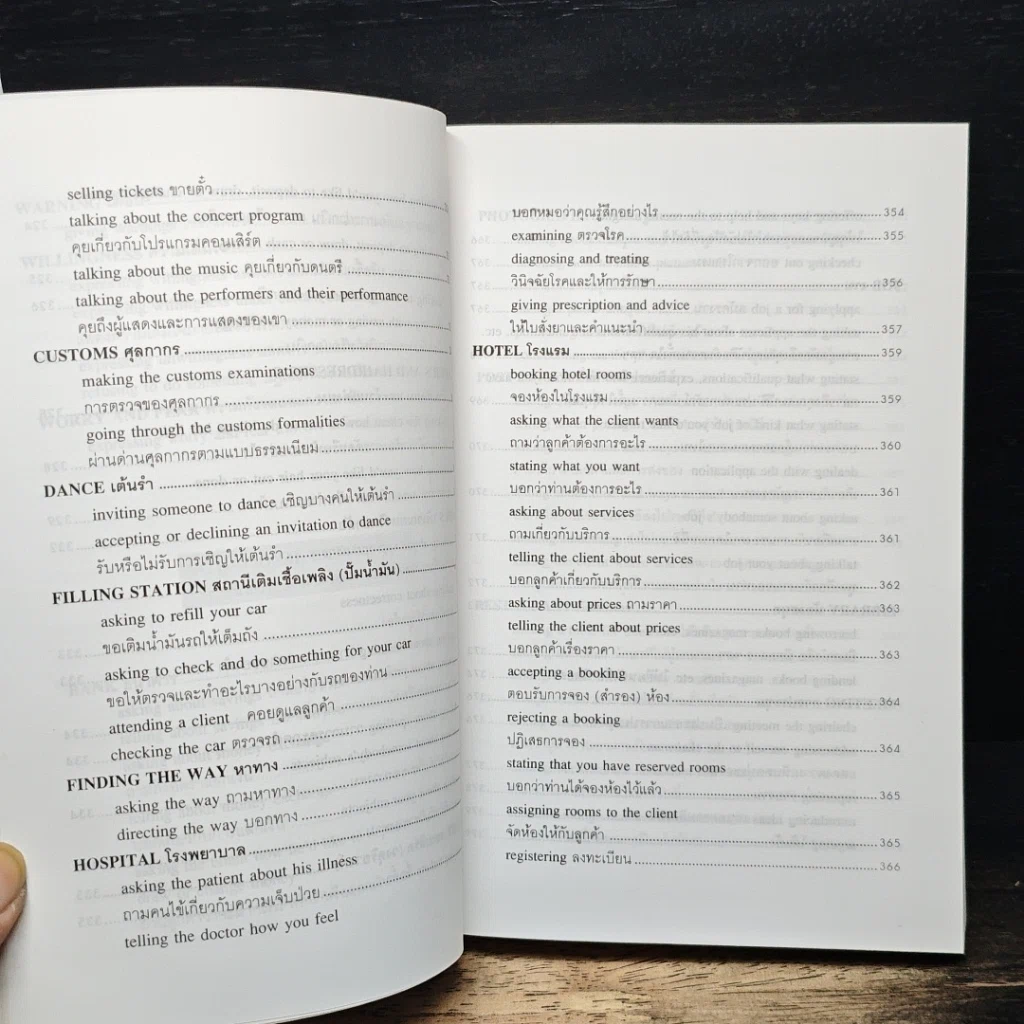 selling tickets ขายตั๋ว
talking about the concert program
คุยเกี่ยวกับโปรแกรมคอนเสิร์ต
talking about the music คุยเกี่ยวกับดนตรี
talking about the performers and their performance
คุยถึงผู้แสดงและการแสดงของเขา
CUSTOMS ศุลกากร
making the customs examinations
การตรวจของศุลกากร
going through the customs formalities
ผ่านด่านศุลกากรตามแบบธรรมเนียม
DANCE เต้นรำ
inviting someone to dance เชิญบางคนให้เต้นรำ
accepting or declining an invitation to dance
รับหรือไม่รับการเชิญให้เต้นรำ
FILLING STATION สถานีเติมเชื้อเพลิง (ปั๊มน้ำมัน)
asking to refill your car
ขอเติมน้ำมันรถให้เต็มถัง
asking to check and do something for your car
ขอให้ตรวจและทำอะไรบางอย่างกับรถของท่าน
attending a client คอยดูแลลูกค้า
checking the car ตรวจรถ
FINDING THE WAY หาทาง
asking the way ถามหาทาง
directing the way บอกทาง
HOSPITAL โรงพยาบาล
asking the patient about his illness
ถามคนไข้เกี่ยวกับความเจ็บป่วย
telling the doctor how you feel
บอกหมอว่าคุณรู้สึกอย่างไร 354
examining ตรวจโรค 355
diagnosing and treating
วินิจฉัยโรคและให้การรักษา 356
giving prescription and advice
ให้ใบสั่งยาและคำแนะนำ 357
HOTEL โรงแรม 359
booking hotel rooms
จองห้องในโรงแรม 359
asking what the client wants
ถามว่าลูกค้าต้องการอะไร 360
stating what you want
บอกว่าท่านต้องการอะไร 361
asking about services
ถามเกี่ยวกับบริการ 361
telling the client about services
บอกลูกค้าเกี่ยวกับบริการ 362
asking about prices ถามราคา 363
telling the client about prices
บอกลูกค้าเรื่องราคา 363
accepting a booking
ตอบรับการจอง (สำรอง) ห้อง 364
rejecting a booking
ปฏิเสธการจอง 364
stating that you have reserved rooms
บอกว่าท่านได้จองห้องไว้แล้ว 365
assigning rooms to the client
จัดห้องให้กับลูกค้า 365
registering ลงทะเบียน 366